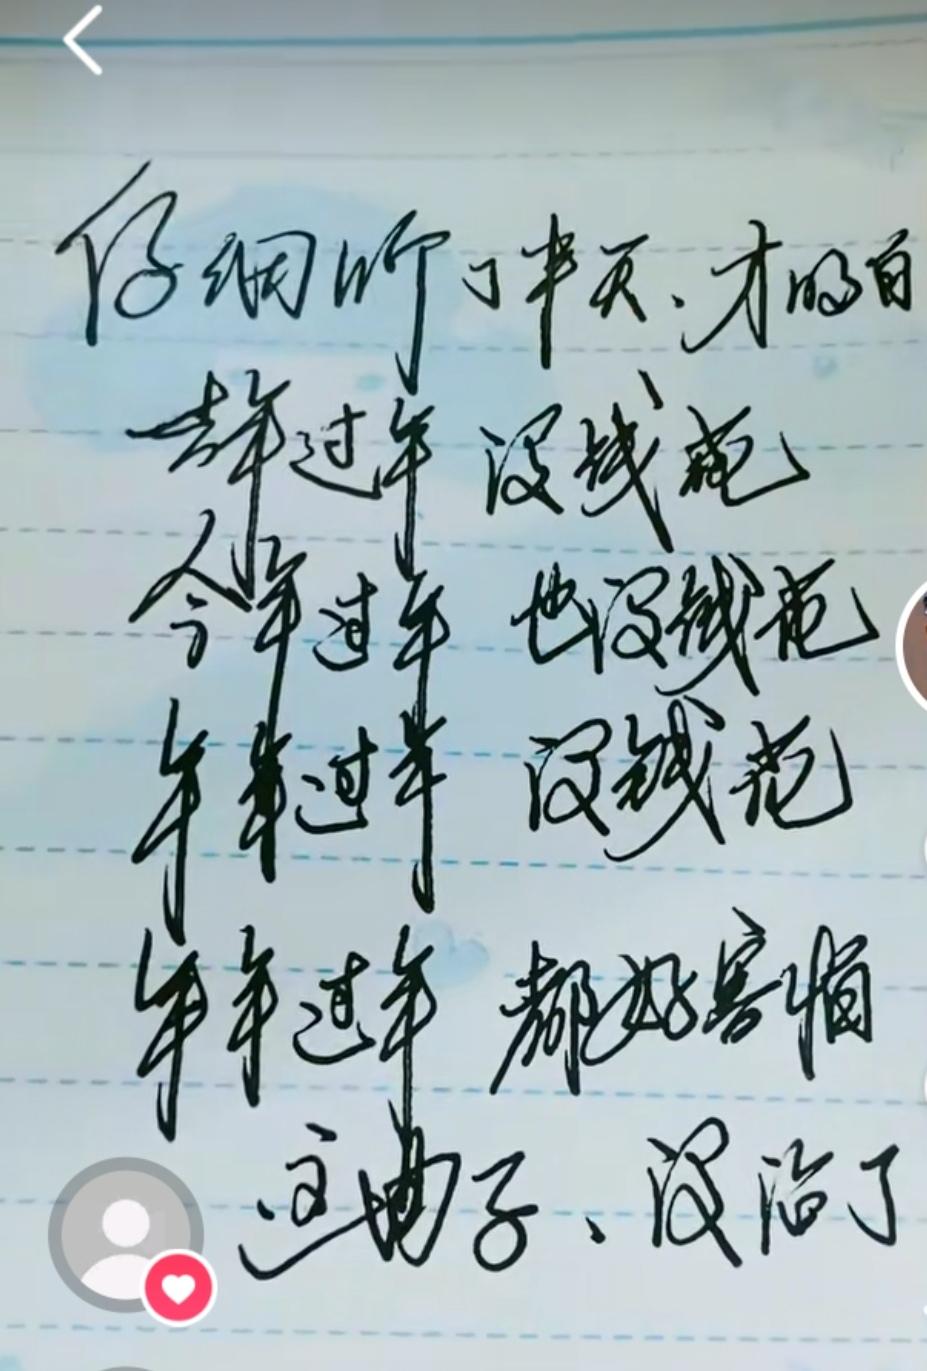 仔细听了半天、才明白
去年过年 没钱花
今年过年 也没钱花
年年过年 没钱花
年年过年 都好害怕
这曲子、没治了